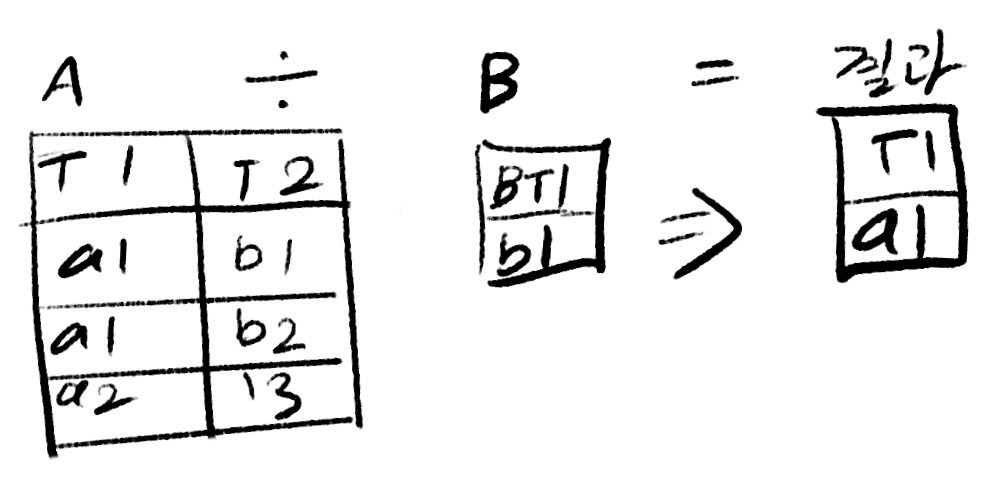 A ÷ B = 결과
T1 T2
a1 b1
a1 b2
a2 13
BT1
b1
⇒
T1
a1